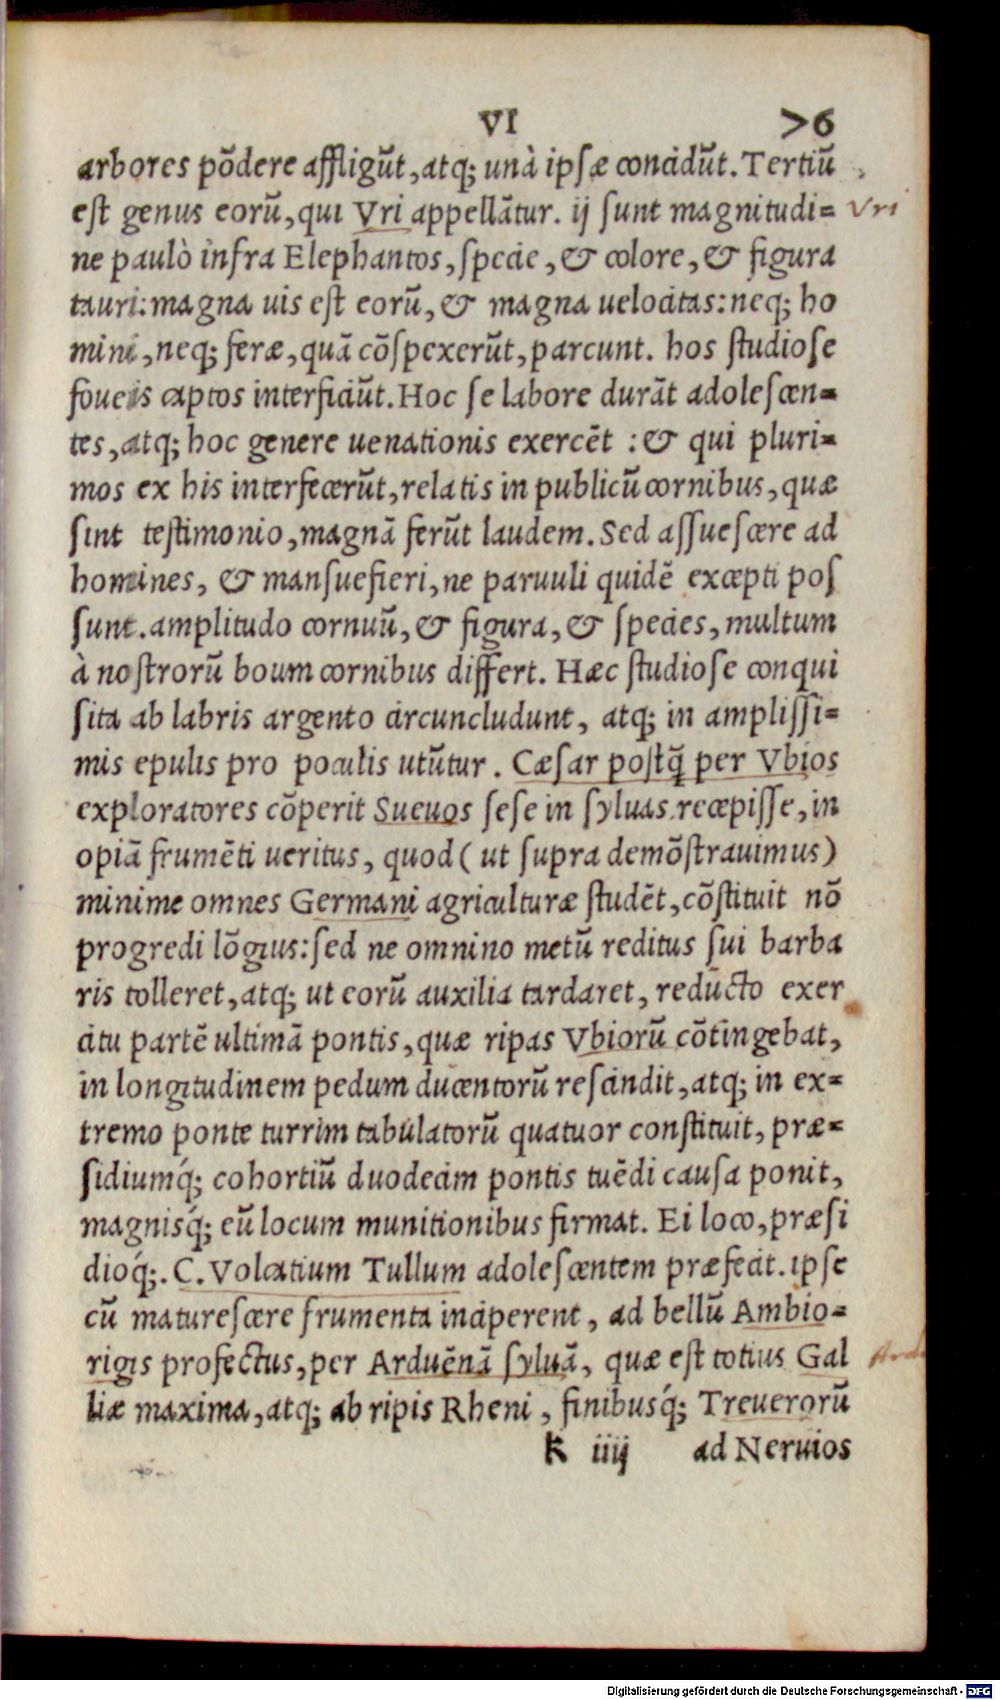 VI 76
arbores põdere affligũt, atq; unà ipſæ concidũt. Tertiũ
eſt genus eorũ, qui Vri appellãtur. ij ſunt magnitudi= Vri
ne paulò infra Elephantos, ſpecie, & colore, & figura
tauri: magna uis eſt eorũ, & magna uelocitas: neq; ho
mini, neq; feræ, quã cõſpexerũt, parcunt. hos ſtudioſe
foueis captos interficiũt. Hoc ſe labore durãt adoleſcen=
tes, atq; hoc genere uenationis exercẽt : & qui pluri=
mos ex his interfecerũt, relatis in publicũ cornibus, quæ
ſint teſtimonio, magnã ferũt laudem. Sed aſſueſcere ad
homines, & manſuefieri, ne paruuli quidẽ excepti poſ
ſunt. amplitudo cornuũ, & figura, & ſpecies, multum
à noſtrorũ boum cornibus differt. Hæc ſtudioſe conqui
ſita ab labris argento circuncludunt, atq; in ampliſſi=
mis epulis pro poculis utũtur. Cæſar poſtq̃ per Vbios
exploratores cõperit Sueuos ſeſe in ſyluas recepiſſe, in
opiã frumẽti ueritus, quod ( ut ſupra demõſtrauimus)
minime omnes Germani agriculturæ ſtudẽt, cõſtituit nõ
progredi lõgius: ſed ne omnino metũ reditus ſui barba
ris tolleret, atq; ut eorũ auxilia tardaret, reducto exer
citu partẽ ultimã pontis, quæ ripas Vbiorũ cõtingebat,
in longitudinem pedum ducentorũ reſcindit, atq; in ex=
tremo ponte turrim tabulatorũ quatuor conſtituit, præ=
ſidiumq́; cohortiũ duodecim pontis tuẽdi cauſa ponit,
magnisq́; eũ locum munitionibus firmat. Ei loco, præſi
dioq́;. C. Volcatium Tullum adoleſcentem præfecit. ipſe
cũ matureſcere frumenta inciperent, ad bellũ Ambio=
rigis profectus, per Arduẽnã ſyluã, quæ eſt totius Gal
liæ maxima, atq; ab ripis Rheni, finibusq́; Treuerorũ
K iiij ad Neruios
Digitalisierung gefördert durch die Deutsche Forschungsgemeinschaft - DFG